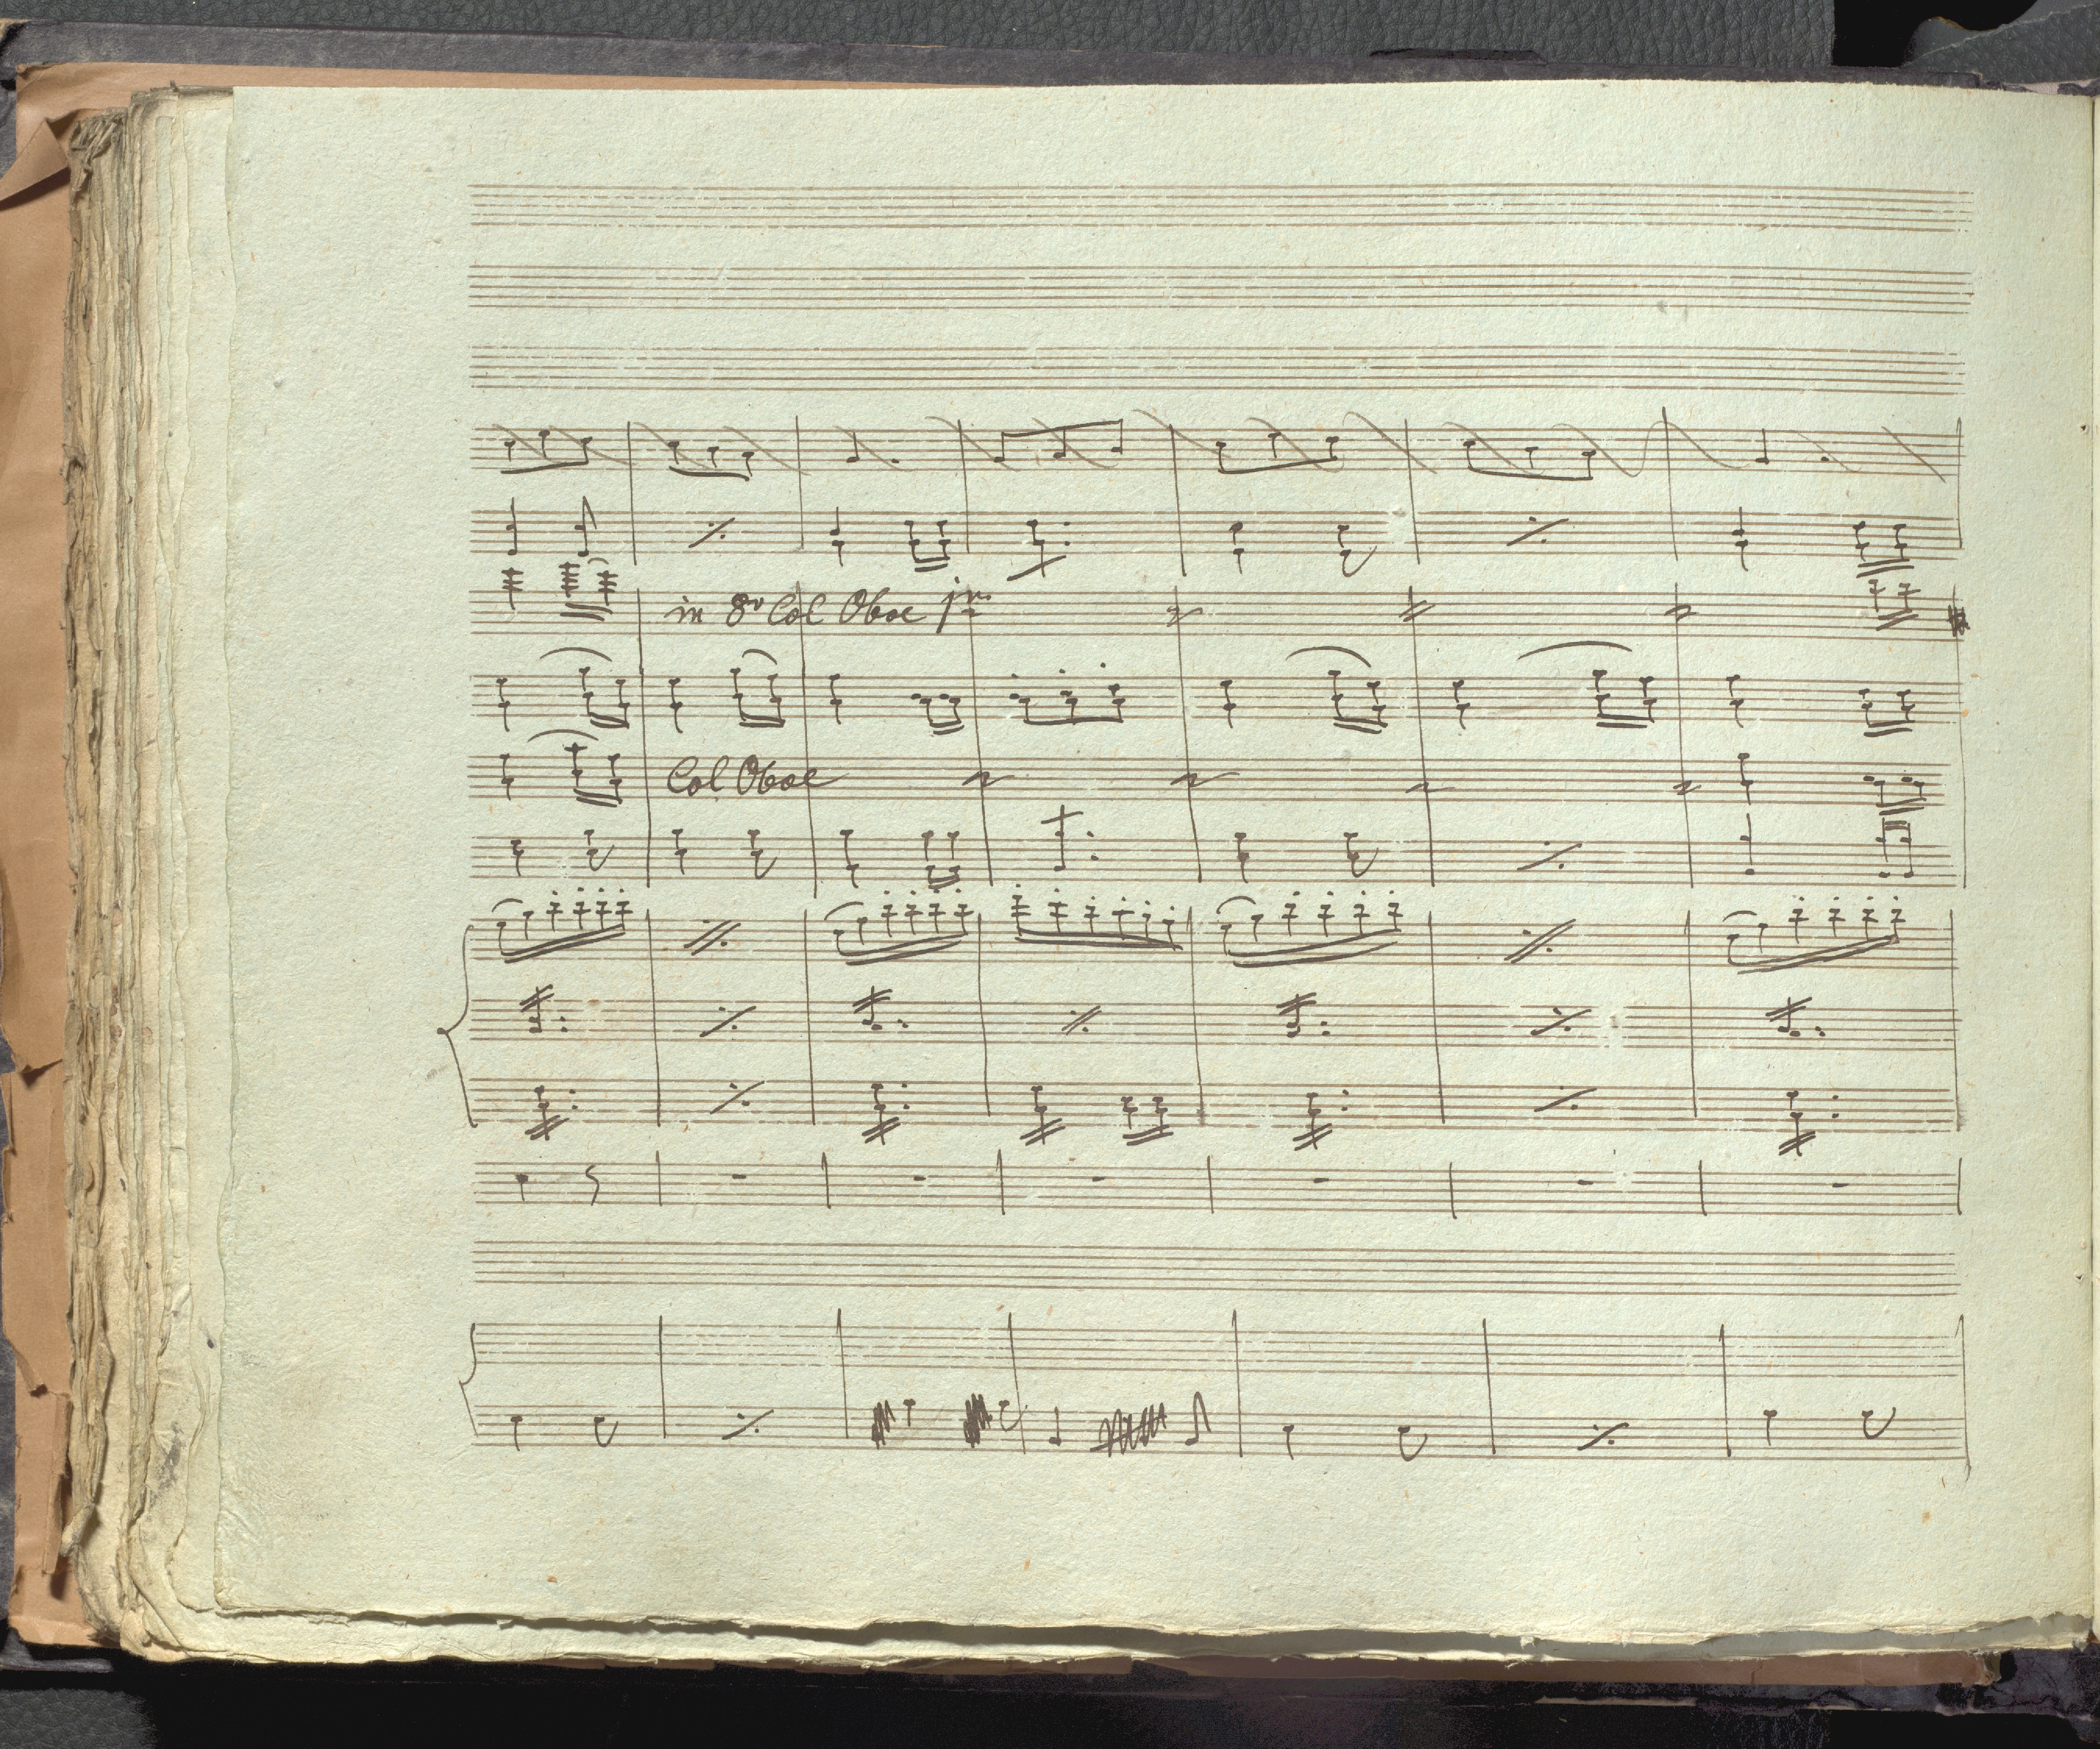 in 8v Col Oboe jm
Col Oboe